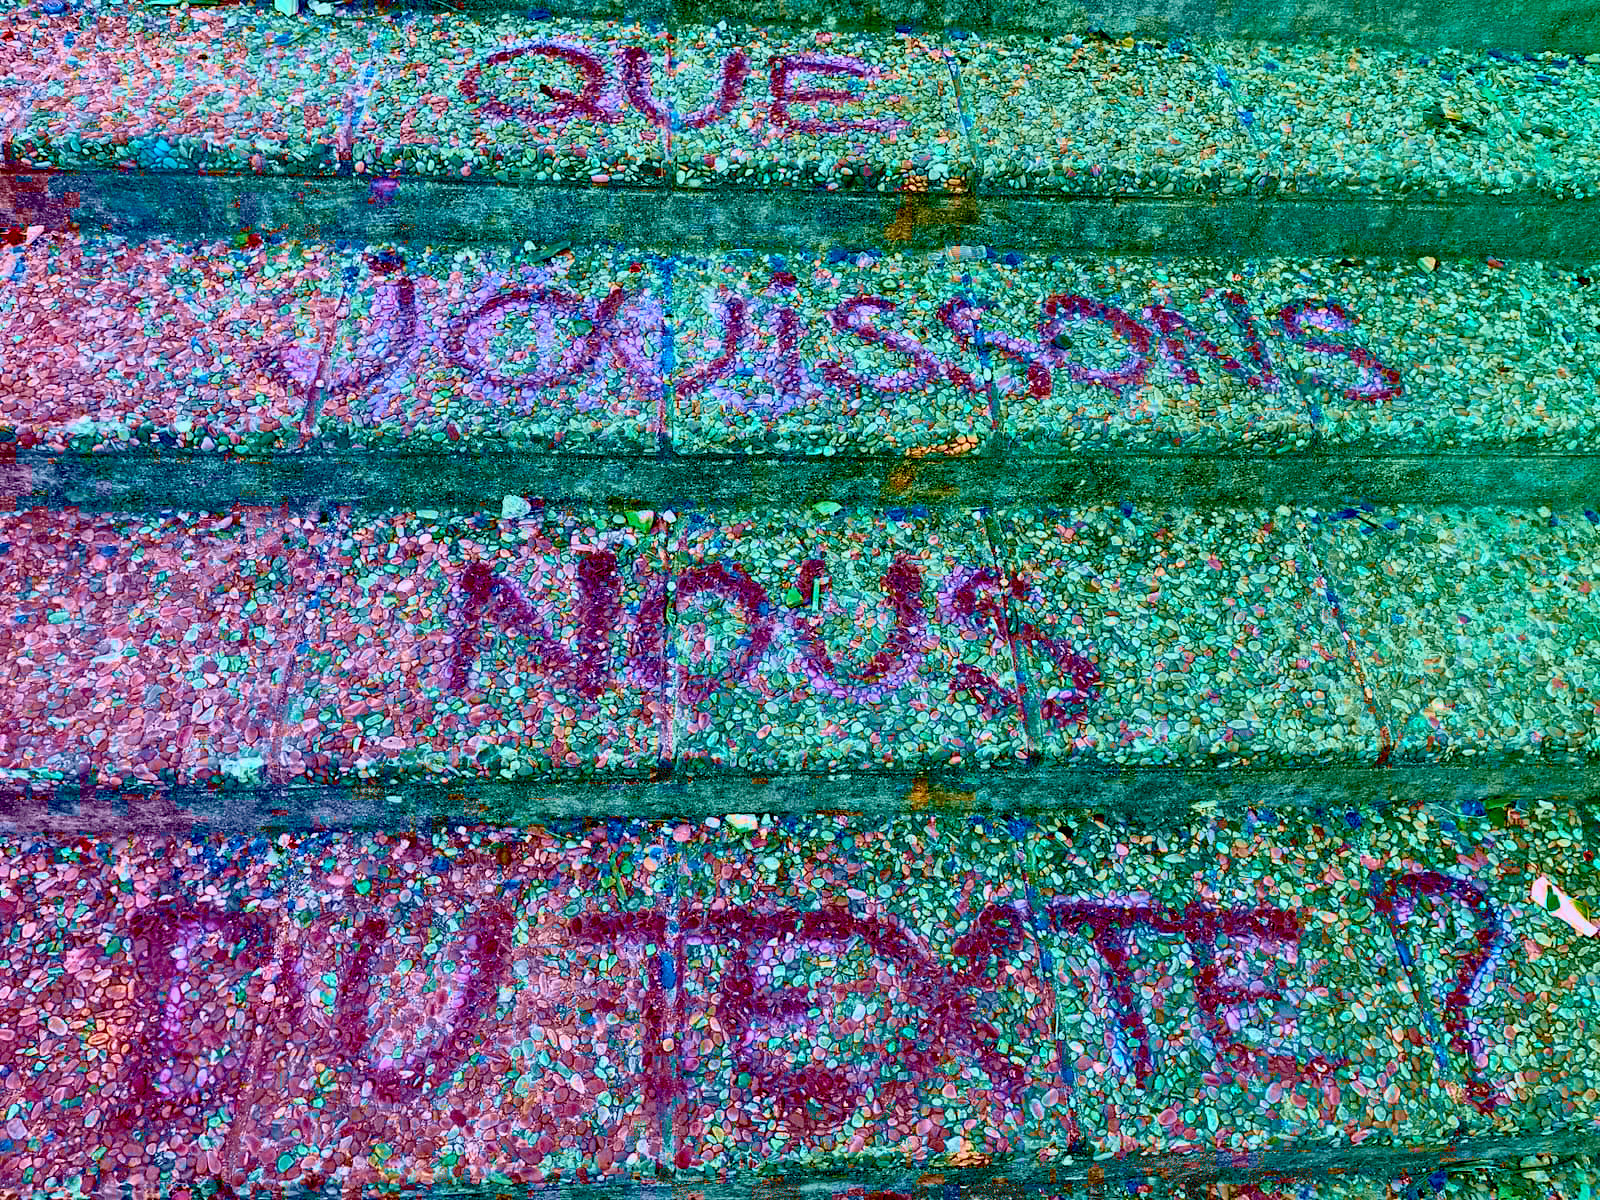 QUE
JOUiSSONS
NOUS
DU TEXTE ?